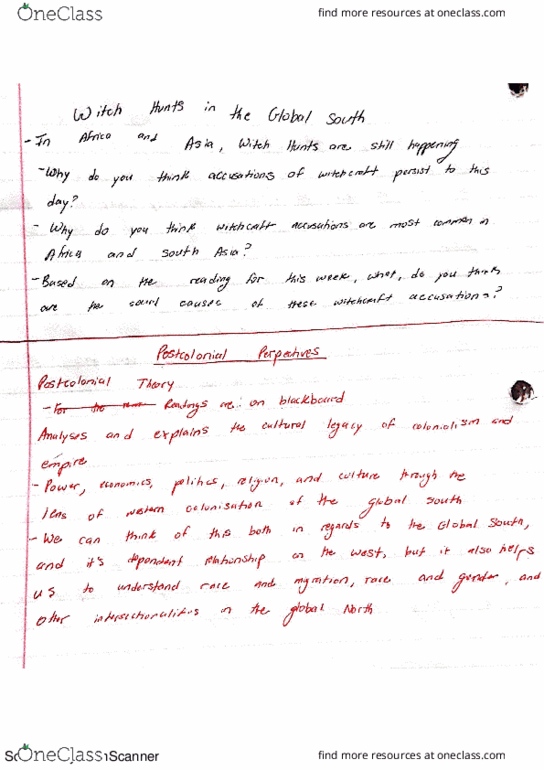 OneClass
find more resources at oneclass.com
Witch Hunts in the Global South
- In Africa and Asia, Witch Hunts are still happening
- Why do you think accusations of witchcraft persist to this
day?
- Why do you think witchcraft accusations are most common in
Africa and South Asia?
- Based on the reading for this week, what, do you think
are the causes of these witchcraft accusations?
Postcolonial Perpectives
Postcolonial Theory
- For the Readings are: on blackboard
Analyses and explains the cultural legacy of colonialism and
empire
- Power, economics, politics, religion, and culture through the
lens of western colonisation of the global south
- We can think of this both in regards to the Global South,
and it's dependent relationship on the West, but it also helps
us to understand race and migration, race and gender, and
other intersectionalities in the global North
OneClass Scanner
find more resources at oneclass.com